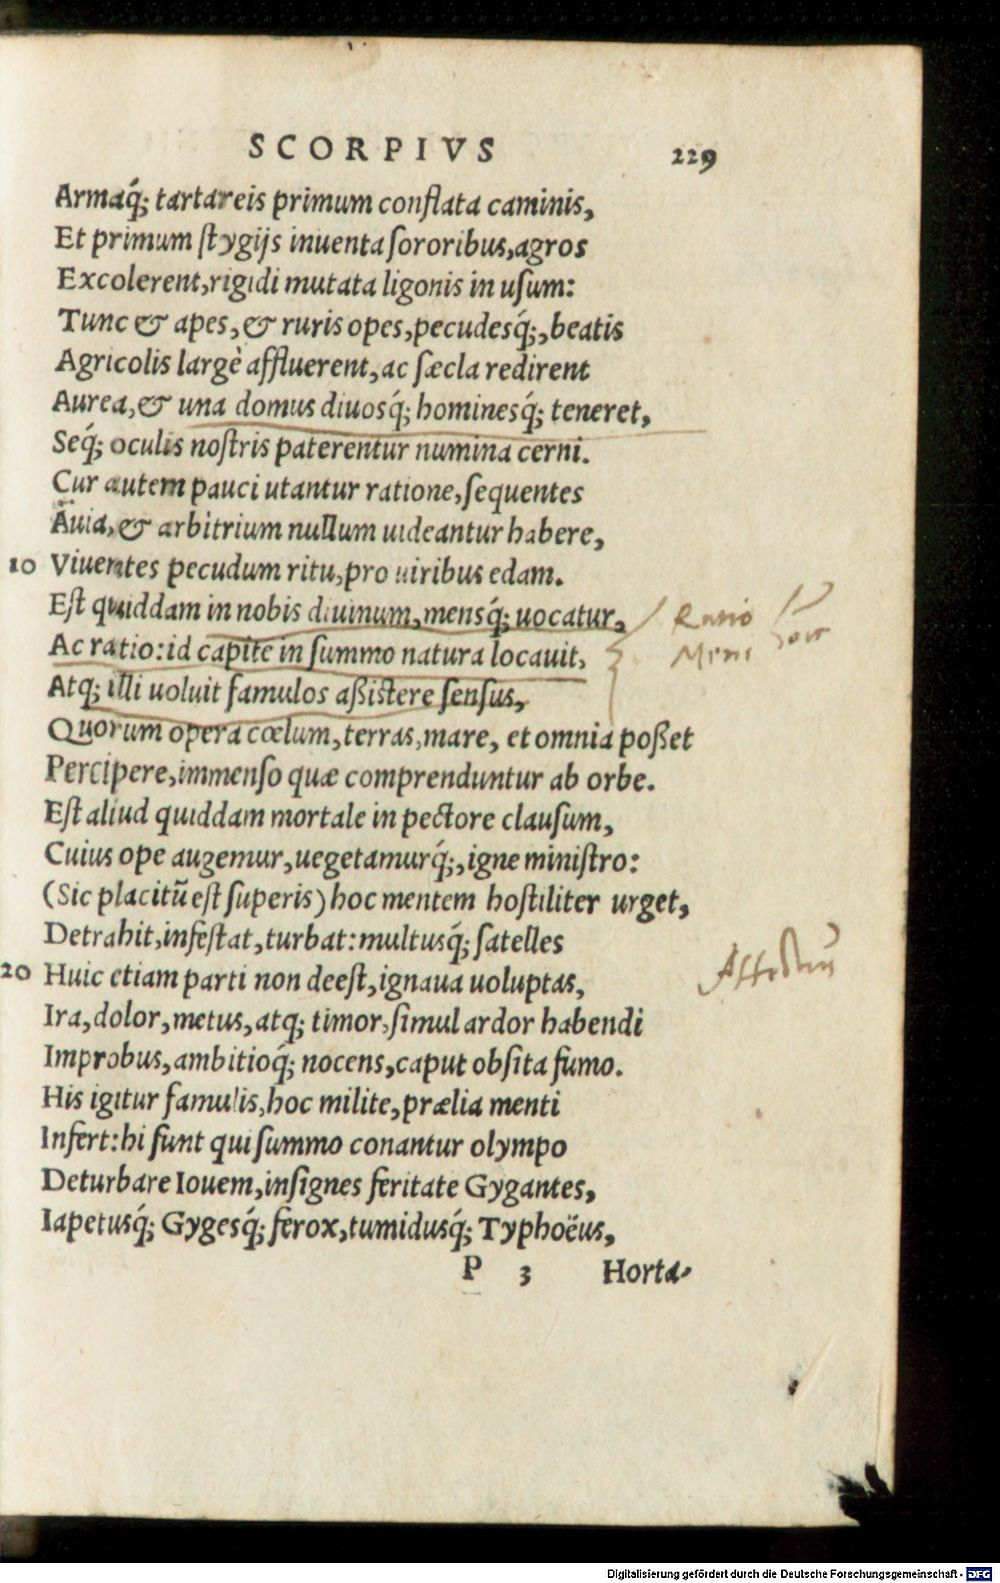 SCORPIVS 229
Armaq́; tartareis primum conflata caminis,
Et primum stygijs inuenta sororibus, agros
Excolerent, rigidi mutata ligonis in usum:
Tunc & apes, & ruris opes, pecudesq́;, beatis
Agricolis largè affluerent, ac sæcla redirent
Aurea, & una domus diuosq́; hominesq́; teneret,
Seq́; oculis nostris paterentur numina cerni.
Cur autem pauci utantur ratione, sequentes
Auia, & arbitrium nullum uideantur habere,
10 Viuentes pecudum ritu, pro uiribus edam.
Est quiddam in nobis diuinum, mensq́; uocatur,
Ac ratio: id capite in summo natura locauit,
Atq; illi uoluit famulos aßistere sensus,
Quorum opera cœlum, terras, mare, et omnia poßet
Percipere, immenso quæ comprenduntur ab orbe.
Est aliud quiddam mortale in pectore clausum,
Cuius ope augemur, uegetamurq́;, igne ministro:
(Sic placitũ est superis) hoc mentem hostiliter urget,
Detrahit, infestat, turbat: multusq́; satelles
20 Huic etiam parti non deest, ignaua uoluptas,
Ira, dolor, metus, atq; timor, simul ardor habendi
Improbus, ambitioq́; nocens, caput obsita fumo.
His igitur famulis, hoc milite, prælia menti
Infert: hi sunt qui summo conantur olympo
Deturbare Iouem, insignes feritate Gygantes,
Iapetusq́; Gygesq́; ferox, tumidusq́; Typhoëus,
P 3 Horta-
Ratio
Mens
Digitalisierung gefördert durch die Deutsche Forschungsgemeinschaft - DFG